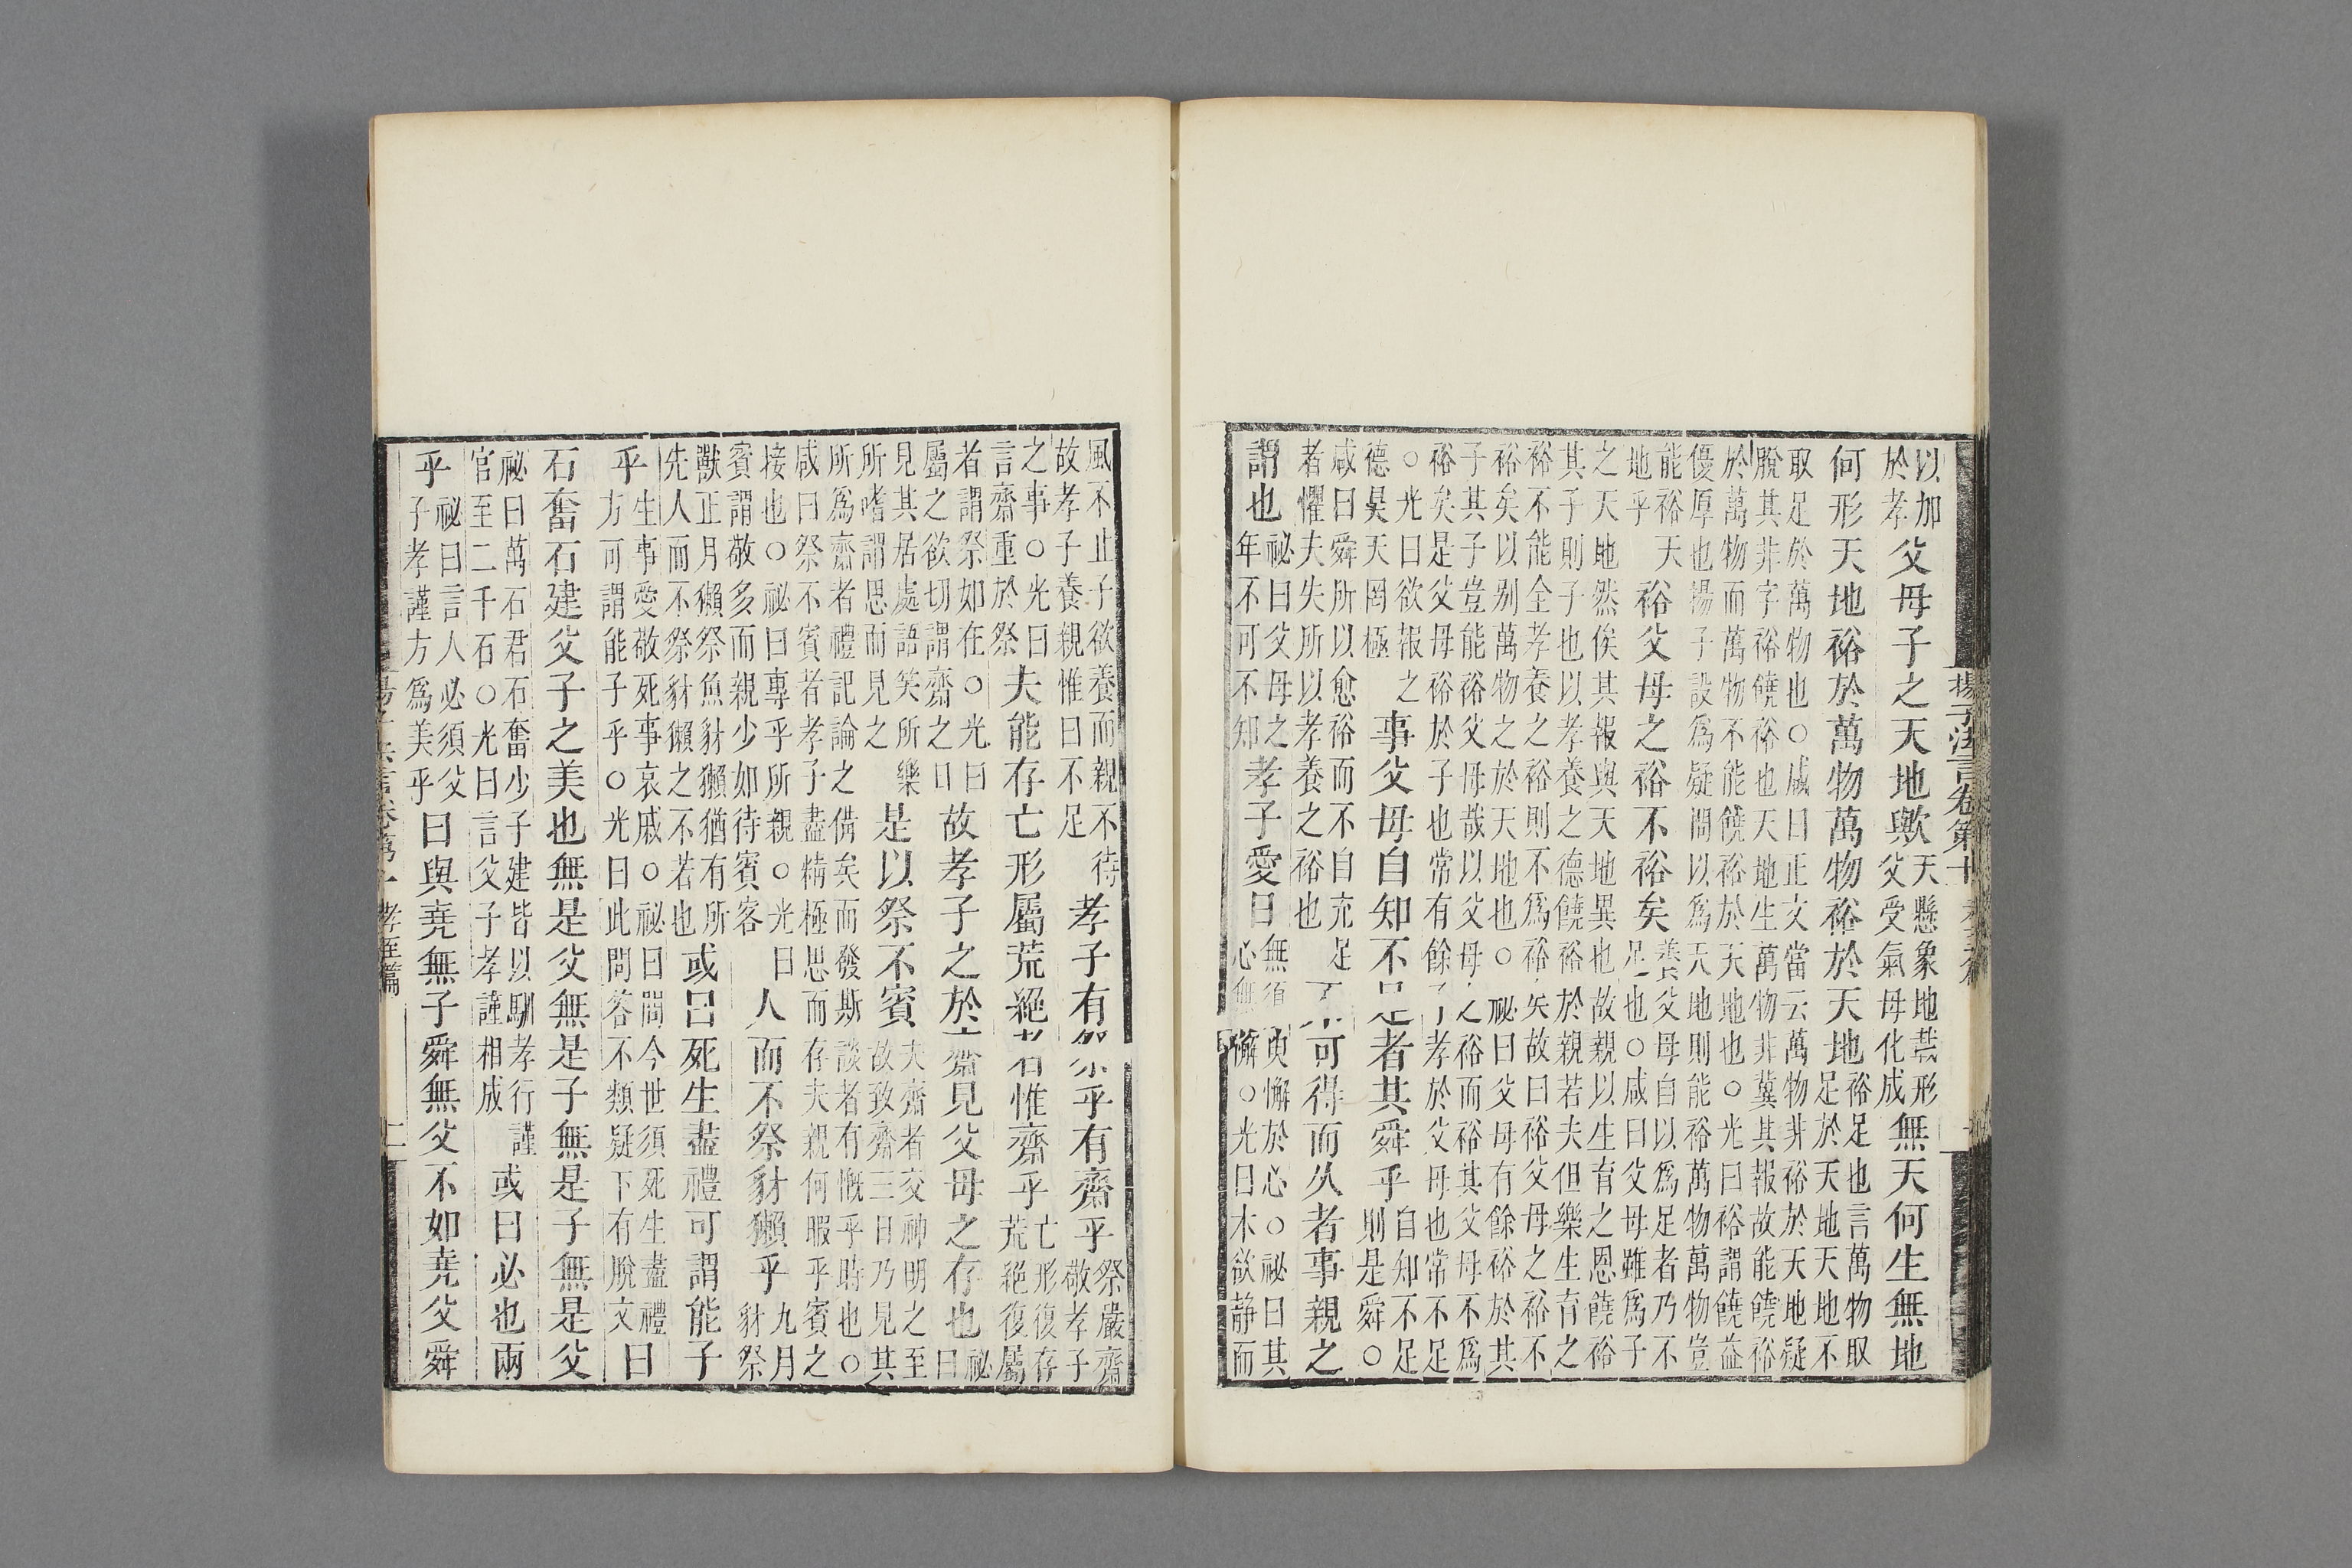 揚子法言卷第十
以加
於孝父母子之天地歟天懸象地載形
父受氣母化成無天何生無地
何形天地裕於萬物萬物裕於天地裕足也言萬物取
足於天地天地不
取足於萬物也○咸曰正文當云萬物非裕於天地疑
脫其非字裕饒裕也天地生萬物非冀其報故能饒裕
於萬物而萬物不能饒裕於天地也○光曰裕謂饒益
優厚也揚子設爲疑問以爲天地則能裕萬物萬物豈
能裕天
地乎裕父母之裕不裕矣養父母自以爲足者乃不
足也○咸曰父母雖爲子
之天地然俟其報與天地異也故親以生育之恩饒裕
其子則子也以孝養之德饒裕於親若夫但樂生育之
裕不能全孝養之裕則不爲裕矣故曰裕父母之裕不
裕矣以别萬物之於天地也○祕曰父母有餘裕於其
子其子豈能裕父母哉以父母之裕而裕其父母不爲
裕矣是父母裕於子也常有餘子孝於父母也常不足
○光曰欲報之
德昊天罔極事父母自知不足者其舜乎自知不足
則是舜○
咸曰舜所以愈裕而不自充足
者懼夫失所以孝養之裕也不可得而久者事親之
謂也祕曰父母之
年不可不知孝子愛日無須臾懈於心○祕曰其
心無懈○光曰木欲静而
風不止子欲養而親不待
故孝子養親惟日不足孝子有祭乎有齋乎祭嚴齋
敬孝子
之事○光曰
言齋重於祭夫能存亡形屬荒絕者惟齋乎亡形復存
荒絕復屬
者謂祭如在○光曰
屬之欲切謂齋之日故孝子之於齋見父母之存也祕
曰
見其居處語笑所樂
所嗜謂思而見之是以祭不賓夫齋者交神明之至
故致齋三日乃見其
所爲齋者禮記論之俻矣而發斯談者有慨乎時也○
咸曰祭不賓者孝子盡精極思而存夫親何暇乎賓之
接也○祕曰專乎所親○光曰
賓謂敬多而親少如待賓客人而不祭豺獺乎九月
豺祭
獸正月獺祭魚豺獺猶有所
先人而不祭豺獺之不若也或曰死生盡禮可謂能子
乎生事愛敬死事哀戚○祕曰問今世須死生盡禮
方可謂能子乎○光曰此問答不類疑下有脫文曰
石奮石建父子之美也無是父無是子無是子無是父
祕曰萬石君石奮少子建皆以馴孝行謹
官至二千石○光曰言父子孝謹相成或曰必也兩
乎祕曰言人必須父
子孝謹方爲美乎曰與堯無子舜無父不如堯父舜
孝至篇
二